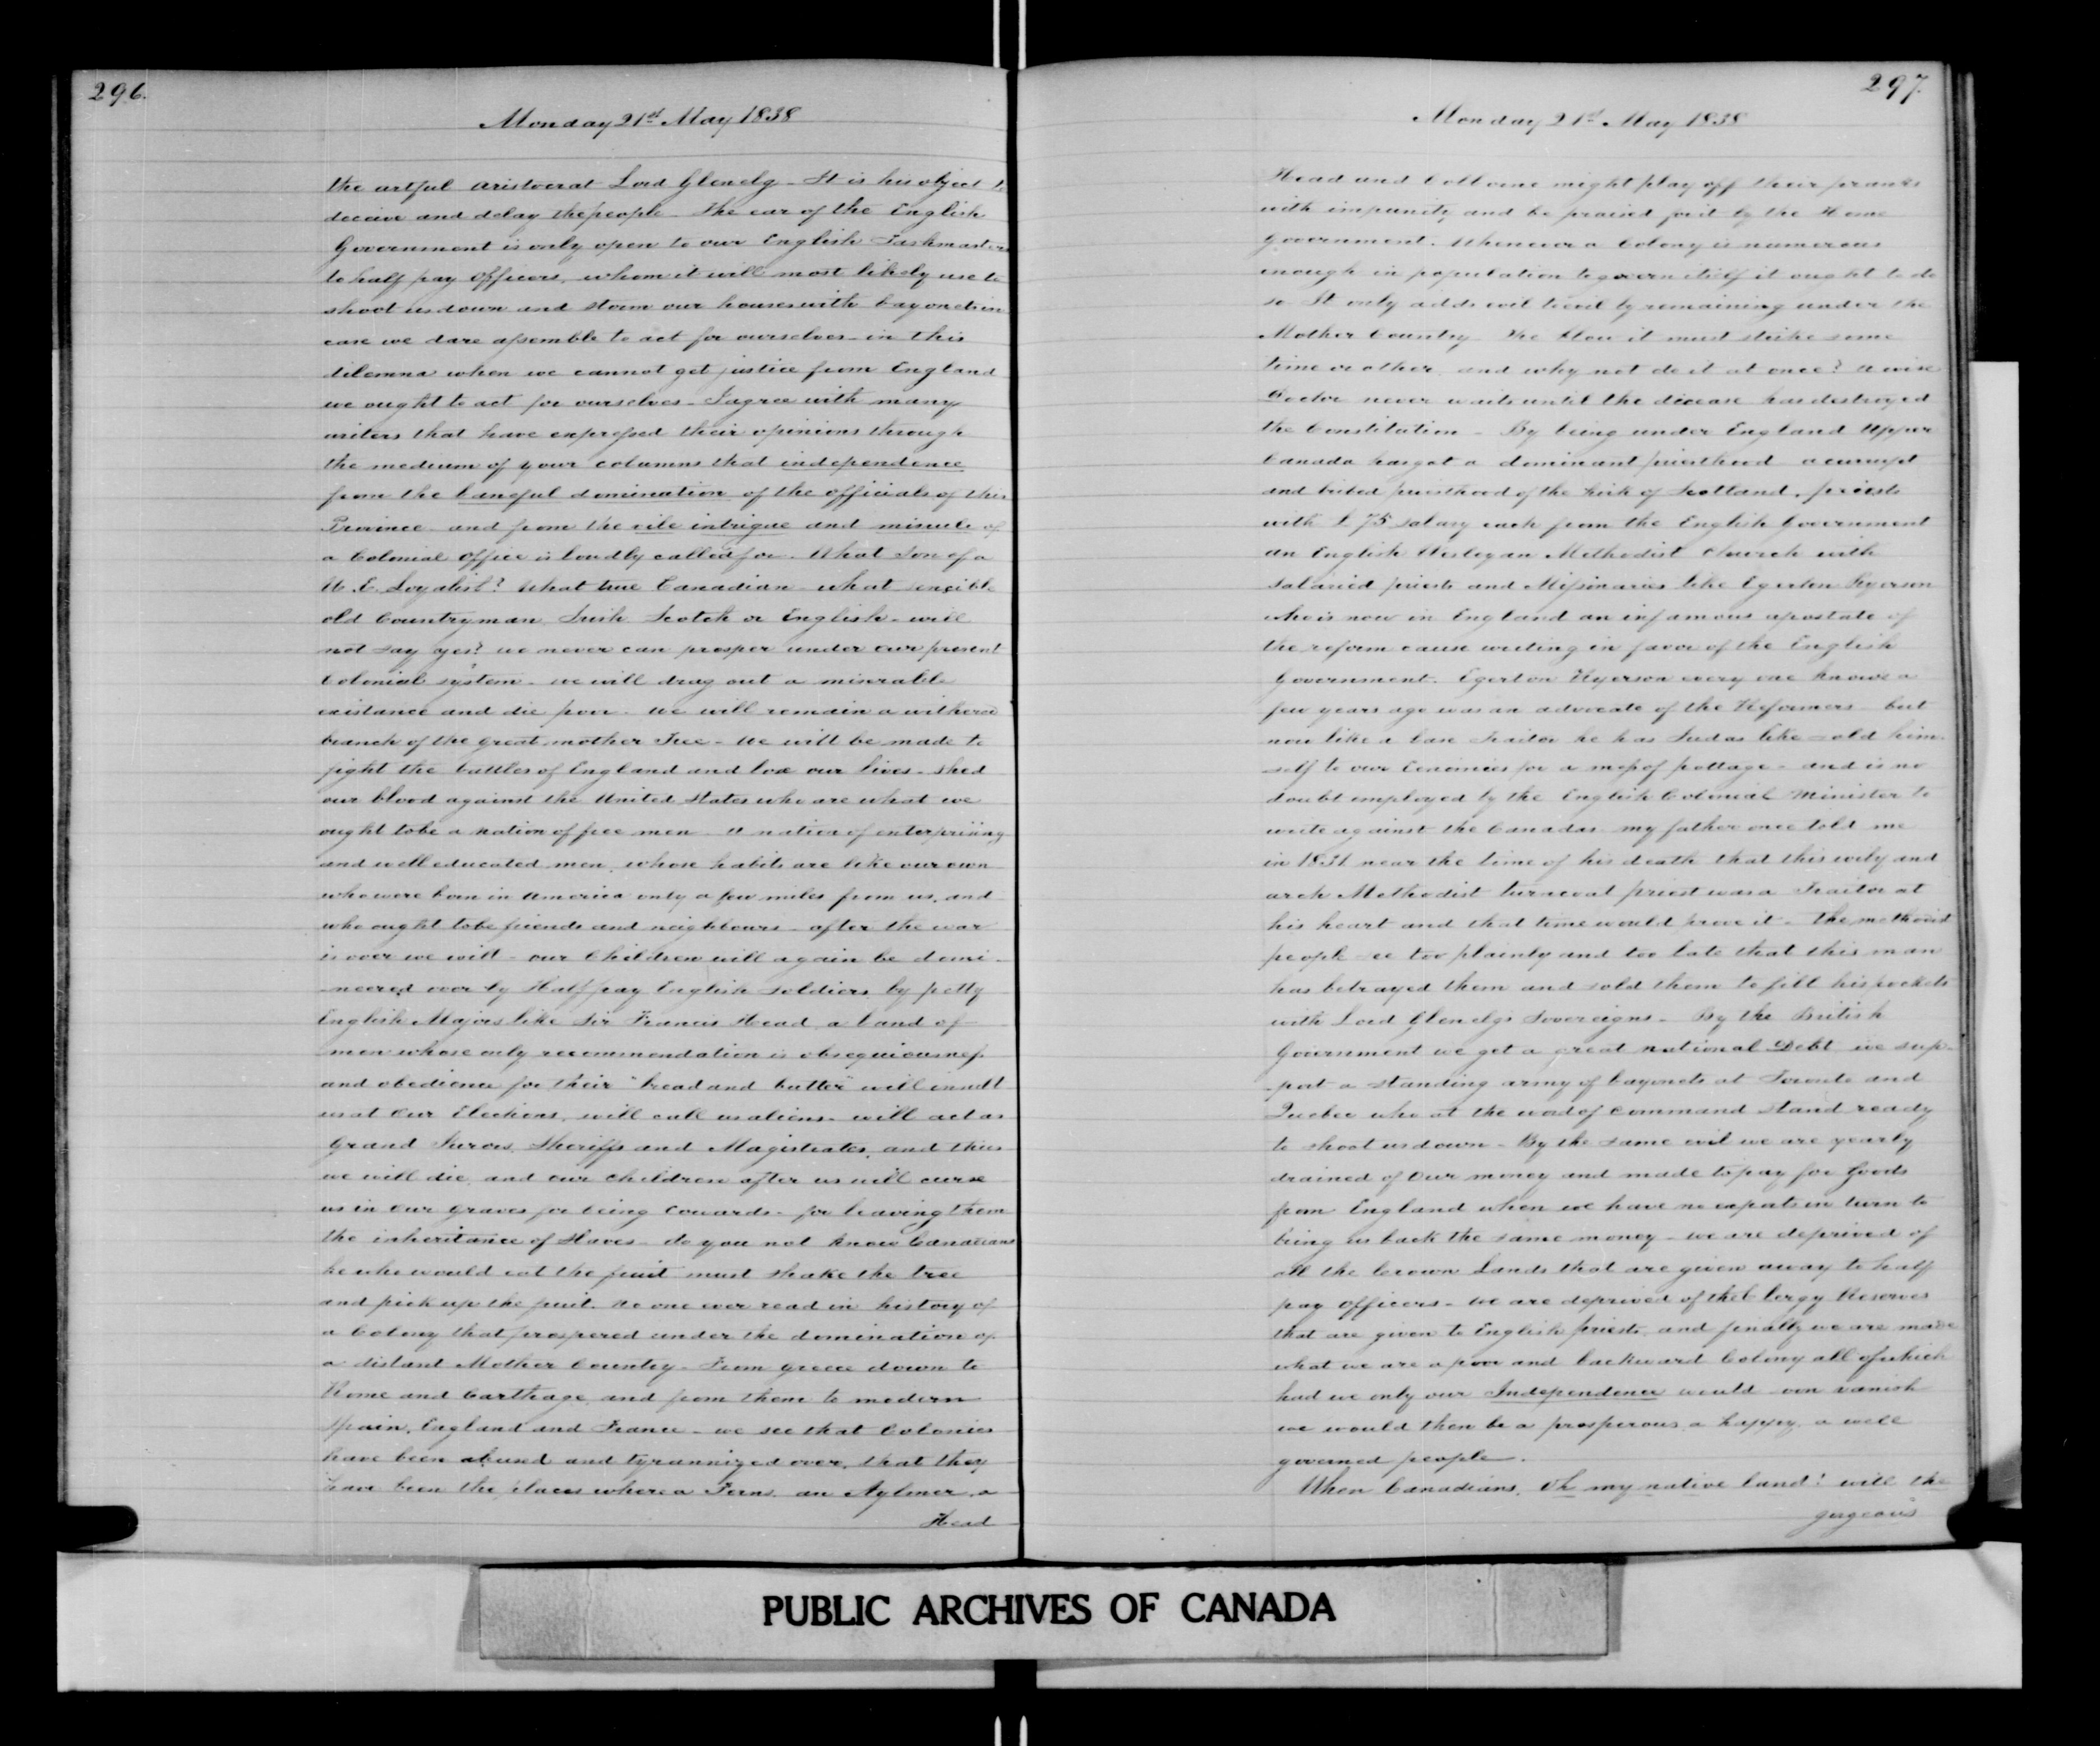 296.
Monday 21st May 1838
the artful aristocrat Lord Glenelg - It is his object to
deceive and delay the people - the ear of the English
Government is only open to our English Taskmasters
to half pay officers, whom it will most likely use to
shoot us down and storm our houses with bayonets in
case we dare assemble to act for ourselves - in this
dilemna when we cannot get justice from England
we ought to act for ourselves - I agree with many
writers that have expressed their opinions through
the medium of your columns that independence
from the baneful domination of the officials of this
Province - and from the vile intrigue and misrule of
a Colonial Office is loudly called for. What Son of a
U. E. Loyalist? What true Canadian - what sensible
old Countryman, Irish Scotch or English - will
not say yes? we never can prosper under our present
Colonial system - we will drag out a miserable
existance and die poor - we will remain a withered
branch of the great mother Tree - We will be made to
fight the battles of England and lose our lives - shed
our blood against the United States who are what we
ought to be a nation of free men - a nation of enterprising
and well educated men, whose habits are like our own
who were born in America only a few miles from us, and
who ought to be friends and neighbours - after the war
is over we will - our Children will again be domi-
-neered over by Half pay English soldiers, by petty
English Majors like Sir Francis Head, a band of
men whose only recommendation is obsequiousness
and obedience for their "bread and butter" will insult
us at Our Elections, will call us aliens - will act as
Grand Jurors, Sheriffs and Magistrates, and thus
we will die, and our children after us will curse
us in Our graves for being Cowards - for leaving them
the inheritance of Slaves - do you not know Canadians
he who would eat the fruit must shake the tree
and pick up the fruit. No one ever read in history of
a Colony that prospered under the domination of
a distant Mother Country - From Greece down to
Rome and Carthage, and from them to modern
Spain, England and France - we see that Colonies
have been abused and tyrannized over, that they
have been the places where a Ferns, an Aylmer, a
Head
297.
Monday 21st May 1838
Head and Colborne might play off their pranks
with impunity and be praised for it by the Home
Government. Whenever a Colony is numerous
enough in population to govern itself it ought to do
so - It only adds evil to evil by remaining under the
Mother Country The blow it must strike some
time or other, and why not do it at once? a wise
Doctor never waits until the disease has destroyed
the Constitution - By being under England Upper
Canada has got a dominant priesthood a currupt
and bribed priesthood of the kirk of Scotland, priests
with £75 salary each from the English Government
an English Wesleyan Methodist Church with
salaried priests and Missinaries like Egerton Ryerson
who is now in England an infamous apostate of
the reform cause writing in favor of the English
Government. Egerton Ryerson every one knows a
few years ago was an advocate of the Reformers but
now like a base Traitor he has Judas like sold him-
-self to our Ennimies for a mess of pottage - and is no
doubt employed by the English Colonial Minister to
write against the Canadas - my father once told me
in 1831 near the time of his death that this wily and
arch Methodist turncoat priest was a Traitor at
his heart and that time would prove it - The methodist
people see too plainly and too late that this man
has betrayed them and sold them to fill his pockets
with Lord Glenelgs Sovereigns - By the British
Government we get a great national Debt we sup-
-port a standing army of bayonets at Toronto and
Quebec who at the word of command stand ready
to shoot us down - By the same evil we are yearly
drained of Our money and made to pay for Goods
from England when we have no exports in turn to
bring us back the same money - we are deprived of
all the Crown Lands that are given away to half
pay officers - we are deprived of the Clergy Reserves
that are given to English priests, and finally we are made
what we are a poor and backward Colony all of which
had we only our Independence would soon vanish
we would then be a prosperous, a happy, a well
governed people.
When Canadians, Oh my native land! will the
gorgeous
PUBLIC ARCHIVES OF CANADA